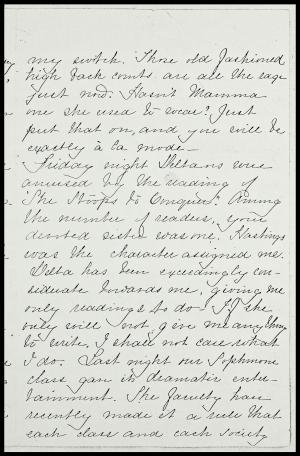 my switch. Those old fashioned
high back combs are all the rage
just now. Hasn't Mamma
one she used to wear? Just
put that on, and you will be
exactly à la mode—
Friday night Deltans were
amused by the reading of
"She Stoops to Conquer". Among
the number of readers, your
devoted sister was one. Hastings
was the character assigned me.
Delta has been exceedingly con-
siderate towards me, giving me
only readings to do. If she
only will not give me anything
to write, I shall not care what
I do. Last night our Sophmore
class gave its dramatic enter-
tainment. The faculty have
recently made it a rule that
each class and each society